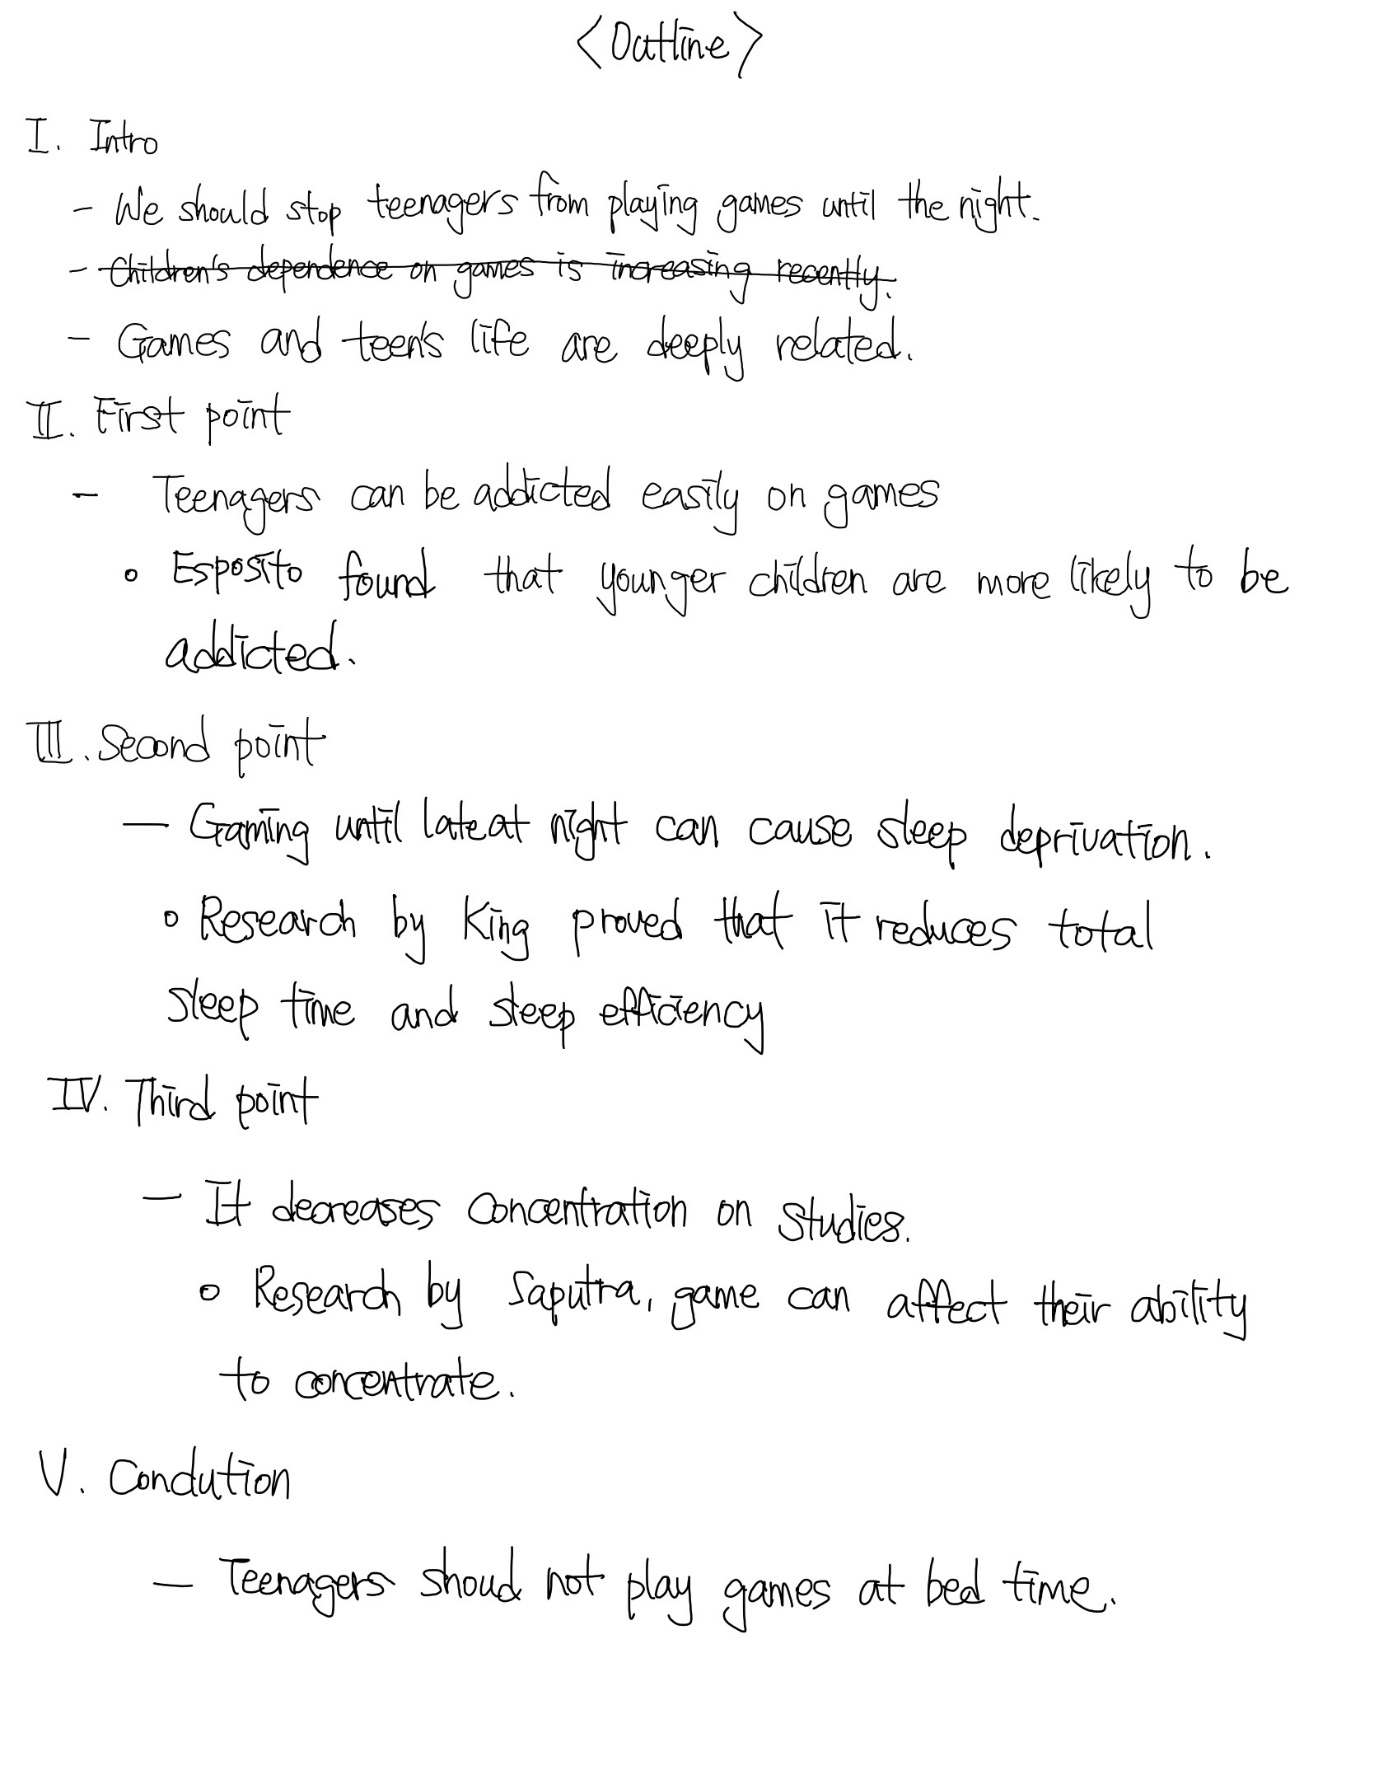 <Outline>
I. Intro
- We should stop teenagers from playing games until the night.
- Children's dependence on games is increasing recently.
- Games and teen's life are deeply related.
II. First point
- Teenagers can be addicted easily on games
◦ Esposito found that younger children are more likely to be
addicted.
III. Second point
- Gaming until late at night can cause sleep deprivation.
◦ Research by King proved that it reduces total
sleep time and sleep efficiency
IV. Third point
- It decreases concentration on studies.
◦ Research by Saputra, game can affect their ability
to concentrate.
V. Conclution
- Teenagers shoud not play games at bed time.